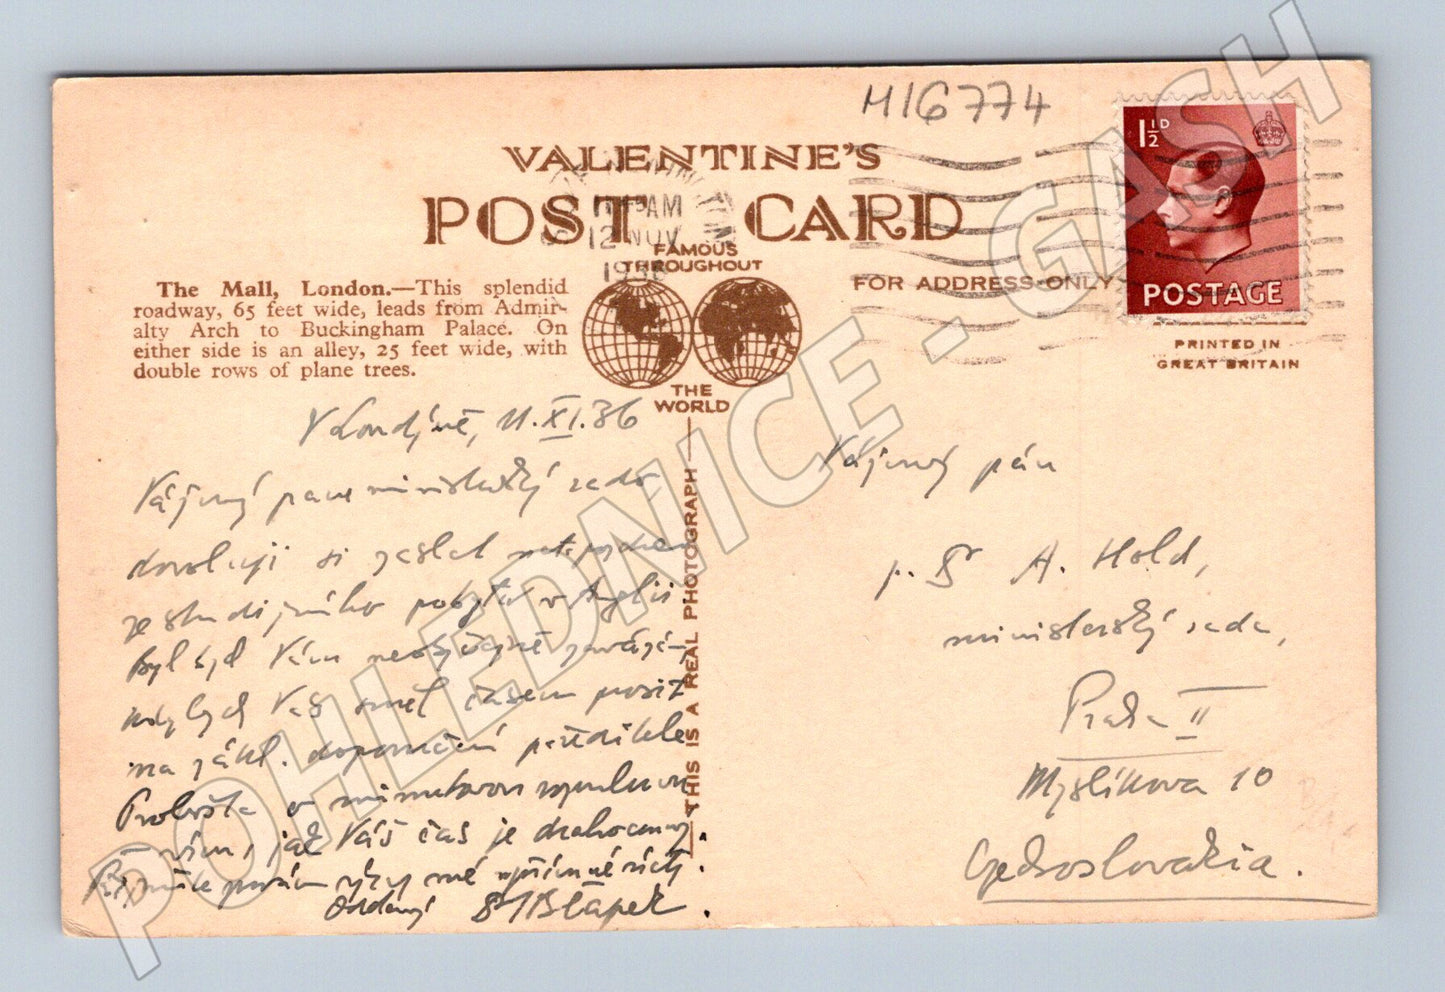 M16774
VALENTINE'S
POST CARD
AM
12 NOV
FAMOUS
THROUGHOUT
THE
WORLD
FOR ADDRESS ONLY
1½D
POSTAGE
PRINTED IN
GREAT BRITAIN
The Mall, London.—This splendid
roadway, 65 feet wide, leads from Admir-
alty Arch to Buckingham Palace. On
either side is an alley, 25 feet wide, with
double rows of plane trees.
THIS IS A REAL PHOTOGRAPH
V Londýně, 11.XI.36
Vážený pane ministerský rado
dovoluji si zaslat
ze studijního pobytu v Anglii.
Byl bych Vám neobyčejně zavázán
kdybych Vás směl časem prosit
na zákl. doporučení ředitele
Probošta o minutovou
vím, jak Váš čas je drahocenný.
Přijměte prosím výraz mé upřímné úcty.
Oddaný
Vážený pán
p. Dr A. Hold,
ministerský rada,
Praha II
Myslíkova 10
Czechoslovakia.
POHLEDNICE - GASH